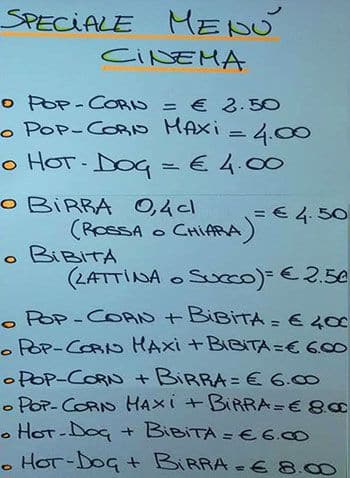 SPECiALE MENÙ
CiNEMA
POP-CORN = € 2.50
POP-CORN MAXi = 4.00
HOT-DOG = € 4.00
BiRRA 0,4cl = € 4.50
(ROSSA o CHiARA)
BiBiTA
(LATTiNA o SUCCO) = € 2.50
POP-CORN + BiBiTA = € 4.00
POP-CORN MAXi + BiBiTA = € 6.00
POP-CORN + BiRRA = € 6.00
POP-CORN MAXi + BiRRA = € 8.00
HOT-DOG + BiBiTA = € 6.00
HOT-DOG + BiRRA = € 8.00